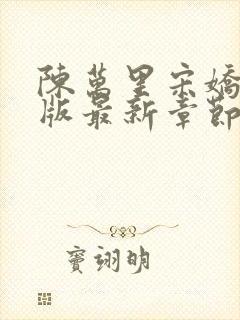 陳萬里宋嬌
版最新章節
竇翊明